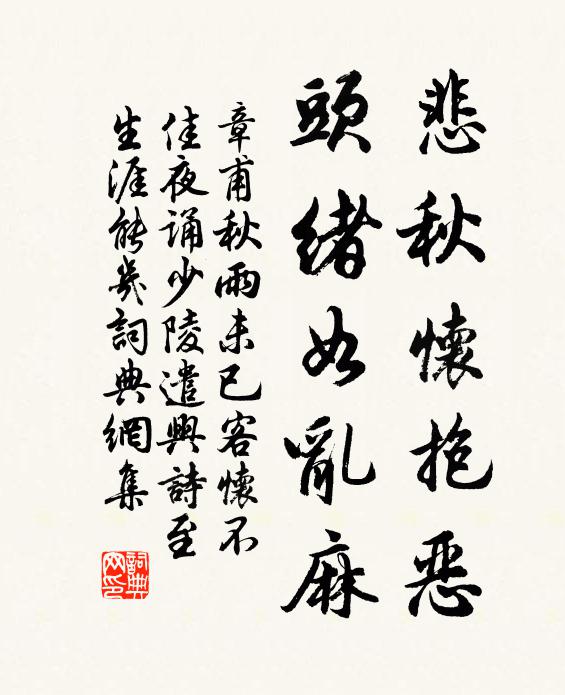 悲秋懷抱恶
頭緒如亂麻
章甫秋雨未已客懷不
佳夜诵少陵遣興詩至
生涯能幾詞典網集
詞典
网印